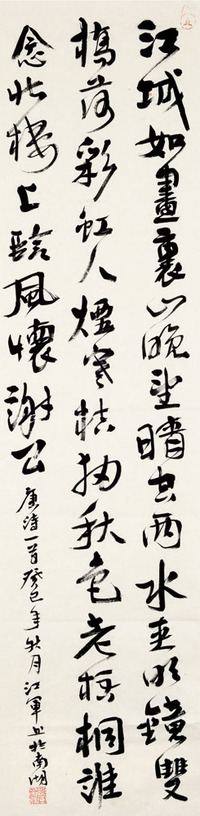 江城如畫裏山晚望晴空兩水夾明鏡雙
橋落彩虹人煙寒桔柚秋色老梧桐誰
念北樓上臨風懷謝公
唐诗一首癸巳年秋月江軍书於南湖